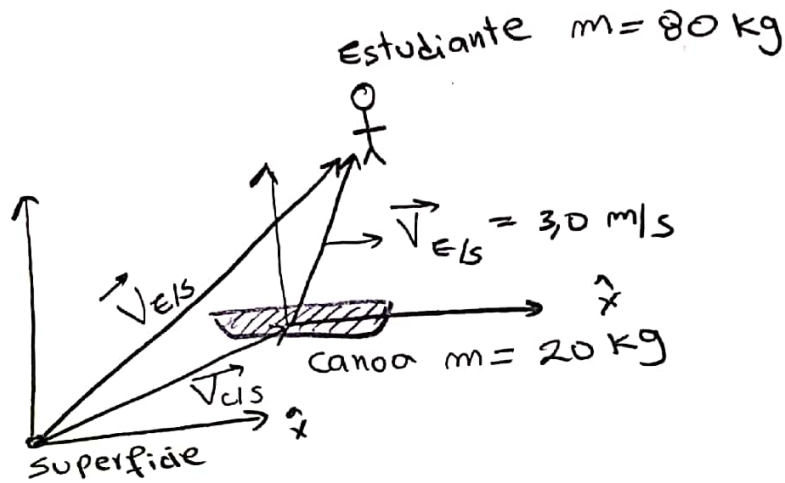 Estudiante m = 80 kg
V⃗E/s = 3,0 m/s
V⃗E/s
x̂
canoa m = 20 kg
V⃗c/s
x̂
superficie